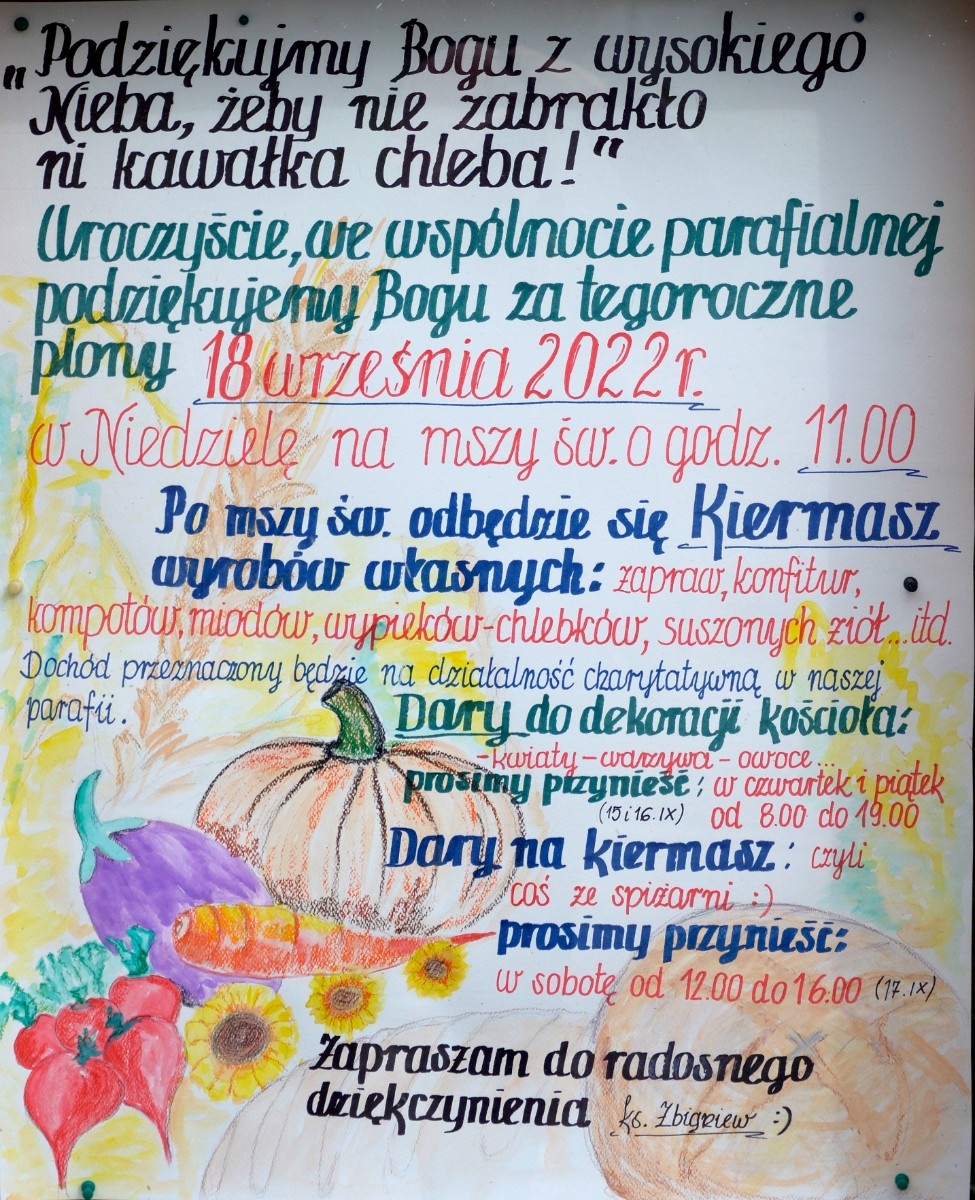 „Podziękujmy Bogu z wysokiego
Nieba, żeby nie zabrakło
ni kawałka chleba!”
Uroczyście, we wspólnocie parafialnej
podziękujemy Bogu za tegoroczne
plony 18 września 2022 r.
w Niedzielę na mszy św. o godz. 11.00
Po mszy św. odbędzie się Kiermasz
wyrobów własnych: zapraw, konfitur,
kompotów, miodów, wypieków-chlebków, suszonych ziół...itd.
Dochód przeznaczony będzie na działalność charytatywną w naszej
parafii.
Dary do dekoracji kościoła:
-kwiaty-warzywa-owoce...
prosimy przynieść: w czwartek i piątek
(15 i 16.IX) od 8.00 do 19.00
Dary na kiermasz: czyli
coś ze spiżarni :)
prosimy przynieść:
w sobotę od 12.00 do 16.00 (17.IX)
Zapraszam do radosnego
dziękczynienia ks. Zbigniew :)